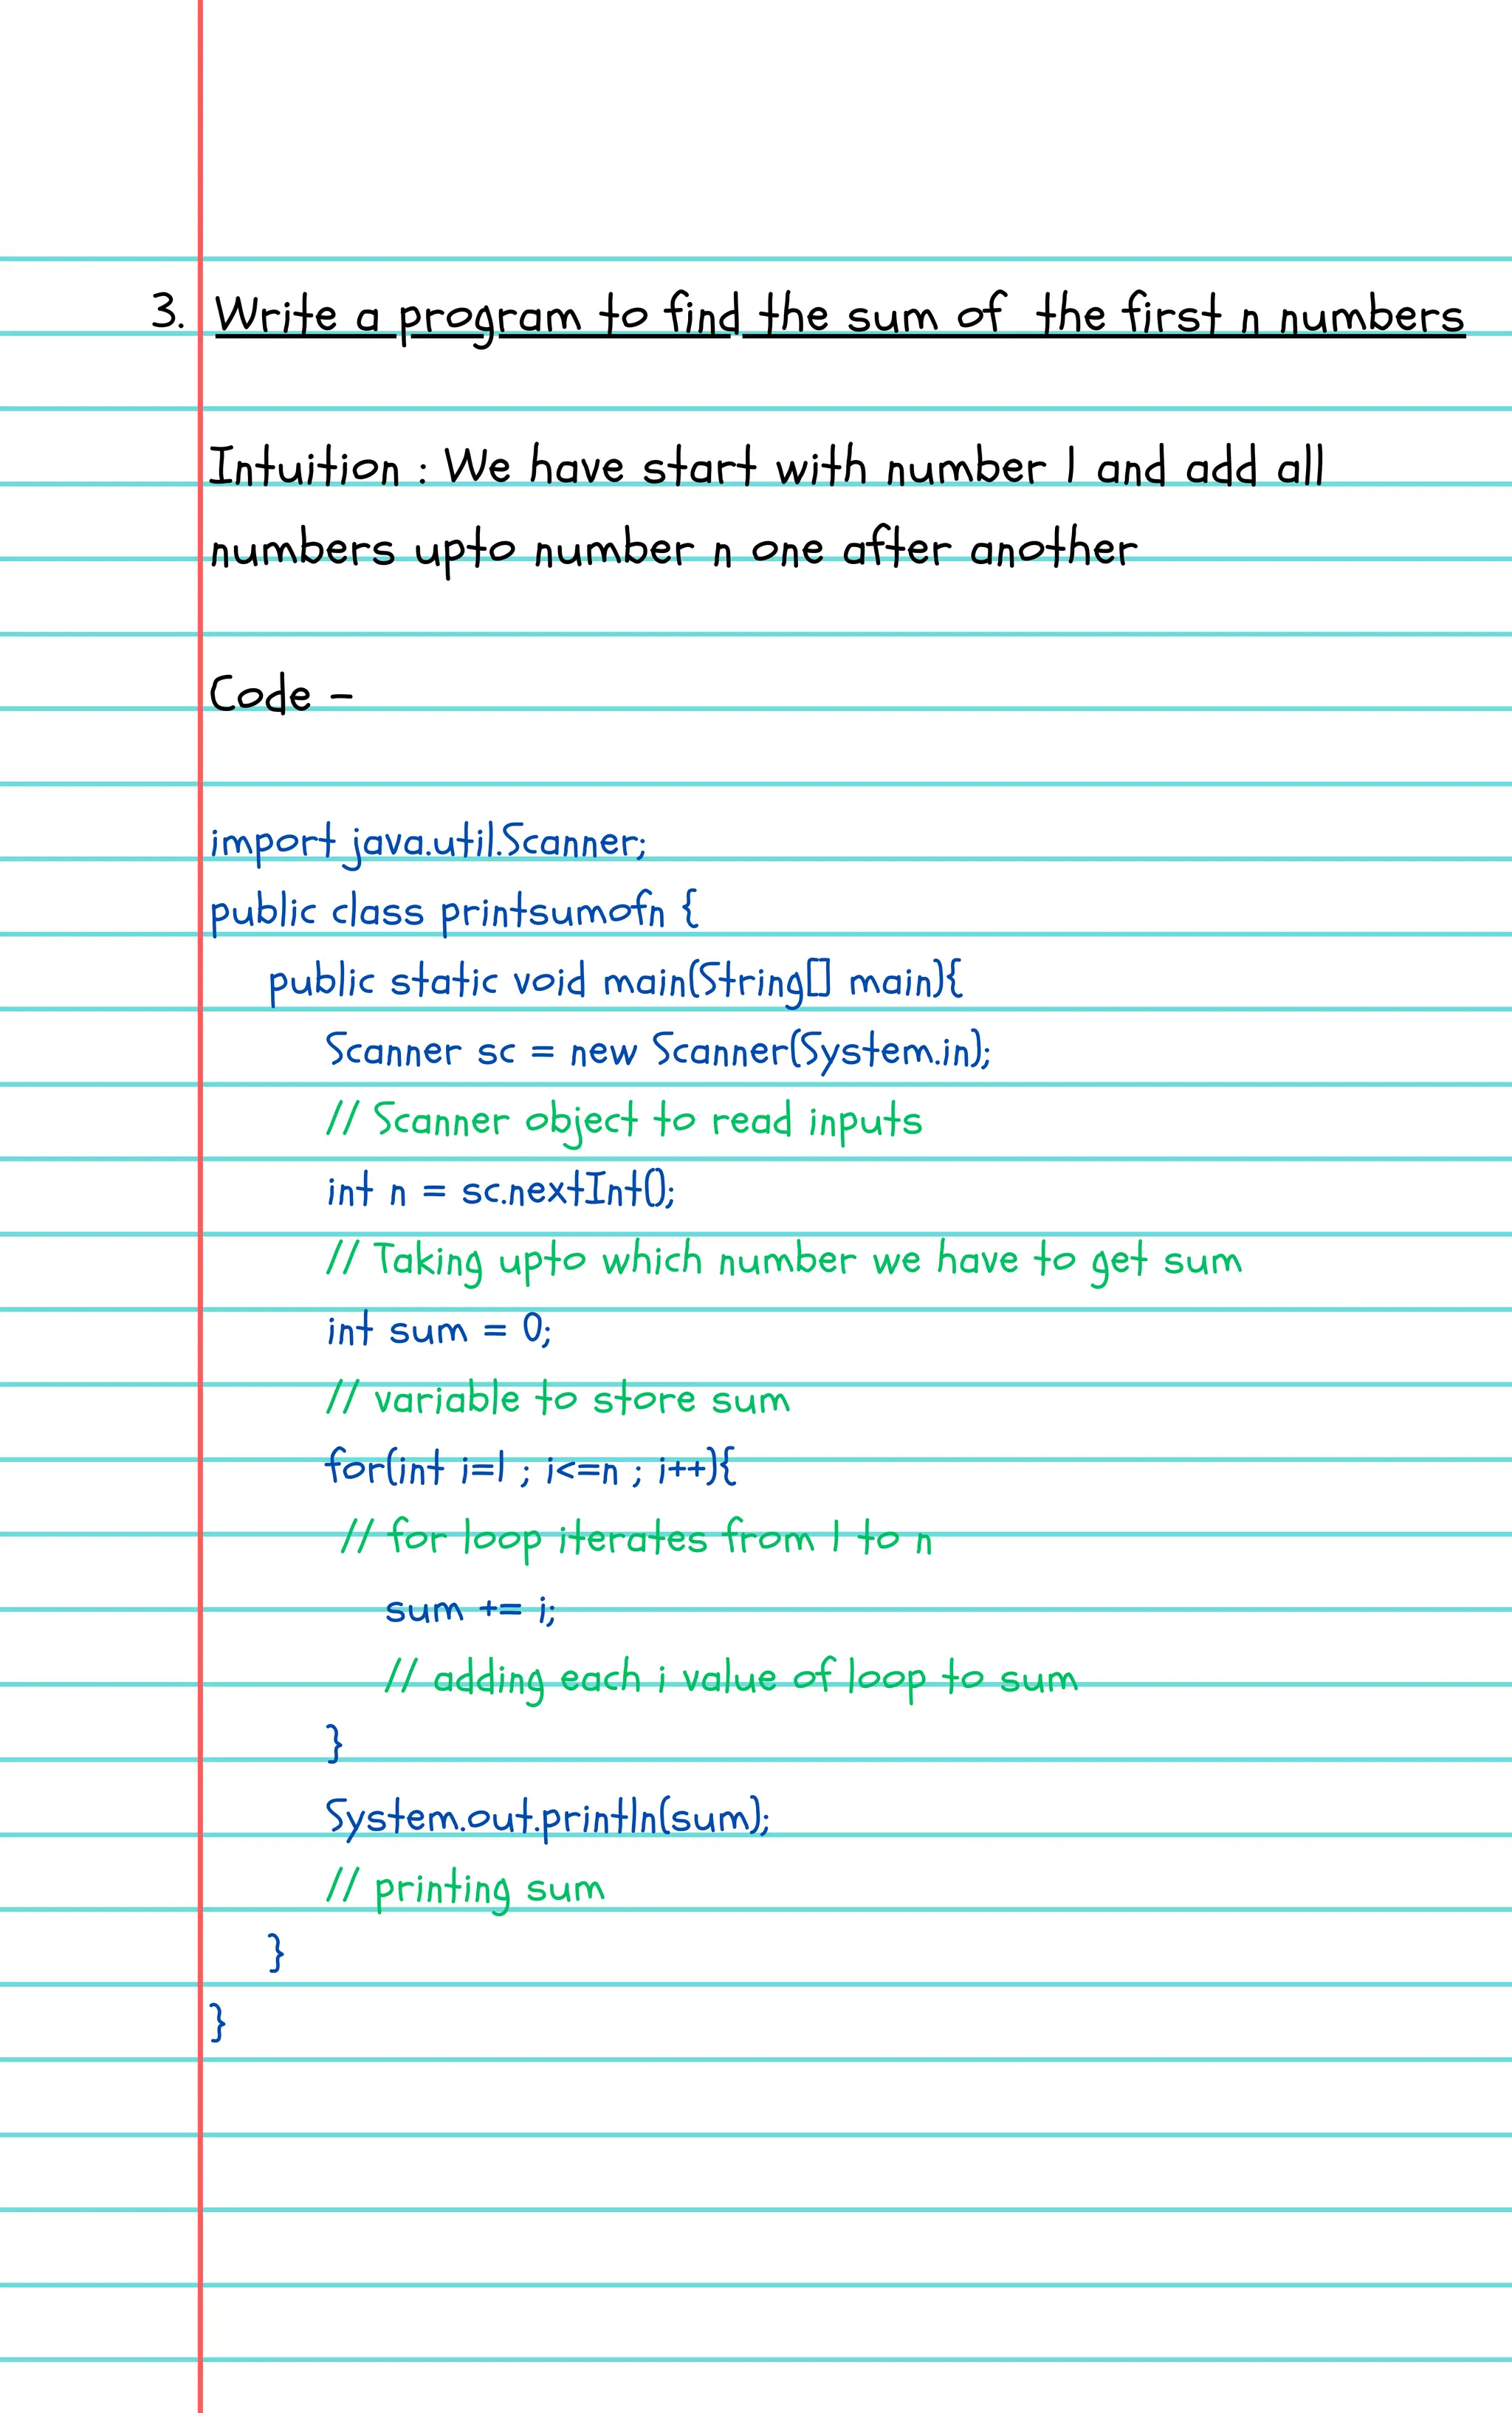 3. Write a program to find the sum of the first n numbers
Intuition : We have start with number 1 and add all
numbers upto number n one after another
Code -
import java.util.Scanner;
public class printsumofn {
public static void main(String[] main){
Scanner sc = new Scanner(System.in);
// Scanner object to read inputs
int n = sc.nextInt();
// Taking upto which number we have to get sum
int sum = 0;
// variable to store sum
for(int i=1 ; i<=n ; i++){
// for loop iterates from 1 to n
sum += i;
// adding each i value of loop to sum
}
System.out.println(sum);
// printing sum
}
}